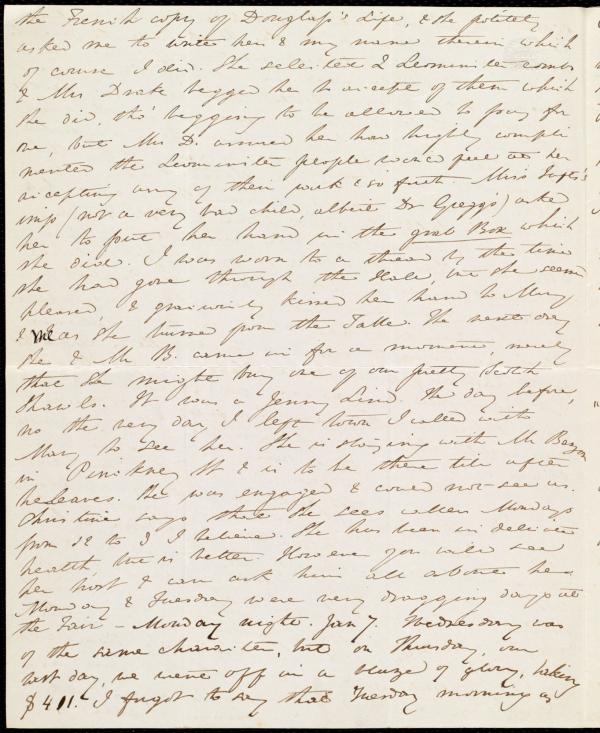 the French copy of Douglass's Life, & she politely
asked me to write her & my name therein which
of course I did. She selected 2 Leominster combs
& Mrs Drak begged her to accept of them which
she did, tho' begging to be allowed to pay for
one, but Mrs D. assured her how highly compli
mented the Leominster people would feel at her
accepting any of their work & so forth Miss
imp (not a very bad child, albeit Dr Gregg's) asked
her to put her hand in the grab Box which
she did. I was worn to a thread by the time
she had gone through the Hall, but she seem
pleased, & graciously kissed her hand to Mary
& me as she turned from the Table. The next day
she & Mr B. came in for a moment, merely
that she might buy one of our pretty Scotch
Shawls. It was a Jenny Lind. The day before,
no the very day I left town I called with
Mary to see her. She is staying with Mr
in Pinckney St & is to be there till after
he leaves. She was engaged & could not see us.
Christine says that she sees callers Mondays
from 12 to 3 I believe. She has been in delicate
health but is better. However you will see
her host & can ask him all about her.
Monday & Tuesday were very dragging days at
the Fair - Monday night. Jan 7. Wednesday was
of the same character, but on Thursday, our
last day, we went off in a blaze of glory, taking
$411. I forgot to say that Tuesday morning as